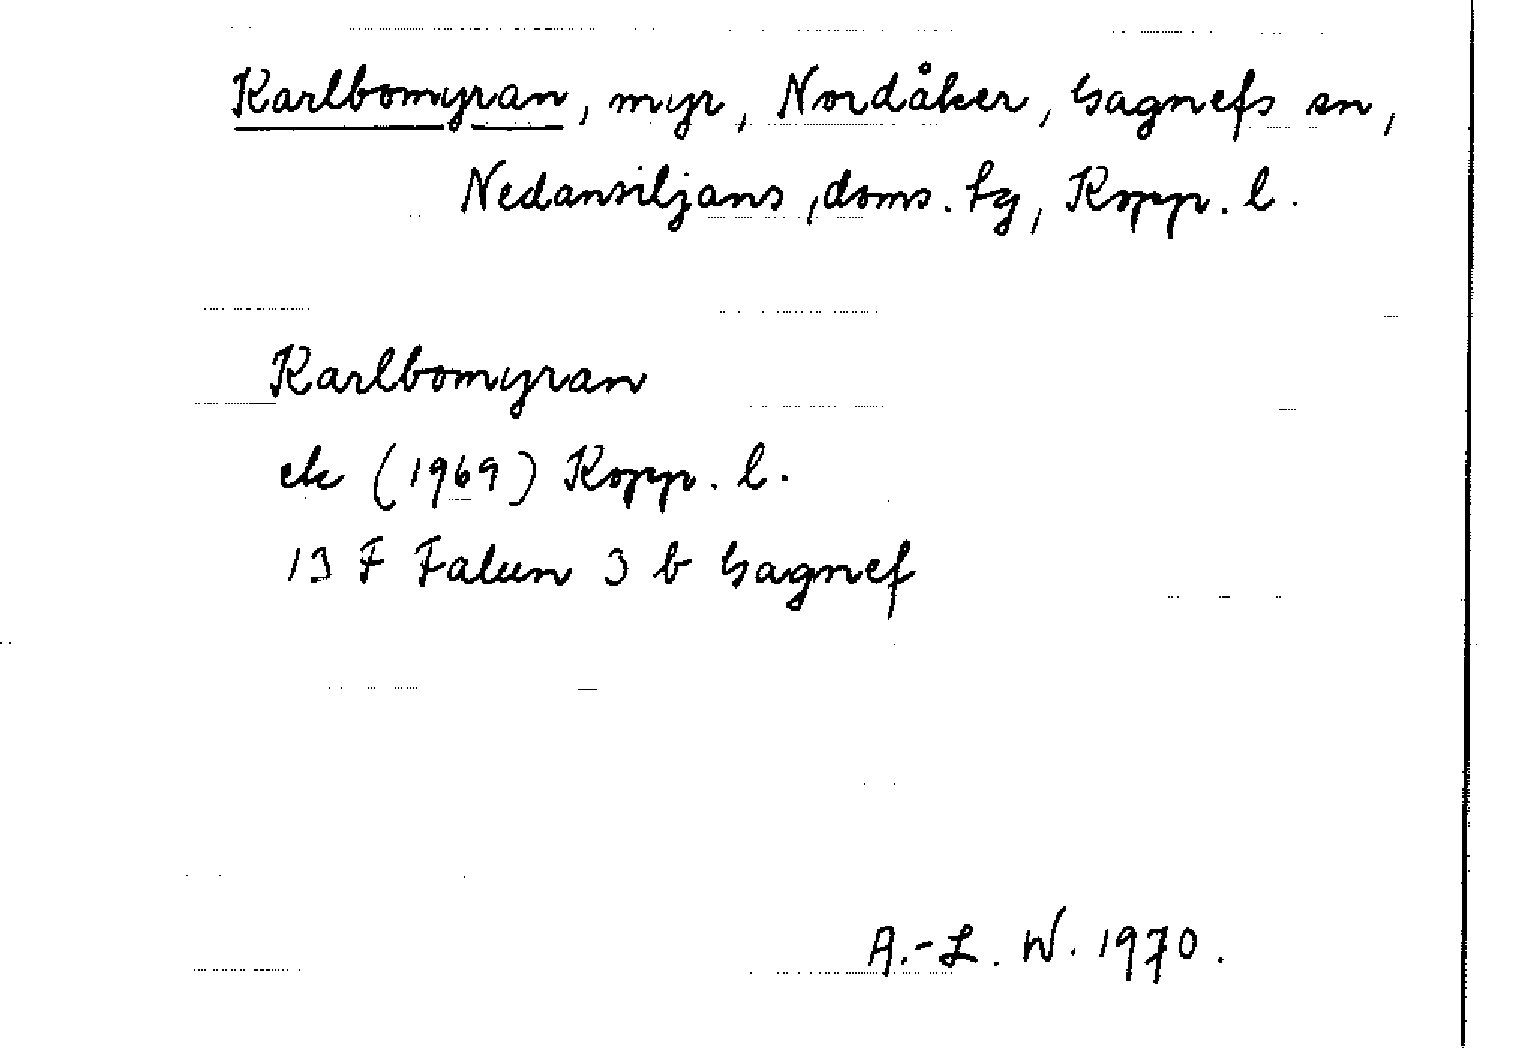 Karlbomyran, myr, Nordåker, Gagnefs sn,
Nedansiljans, doms. tg, Kopp. l.
Karlbomyran
ek (1969) Kopp. l.
13 F Falun 3 b Gagnef
A.-L. W. 1970.